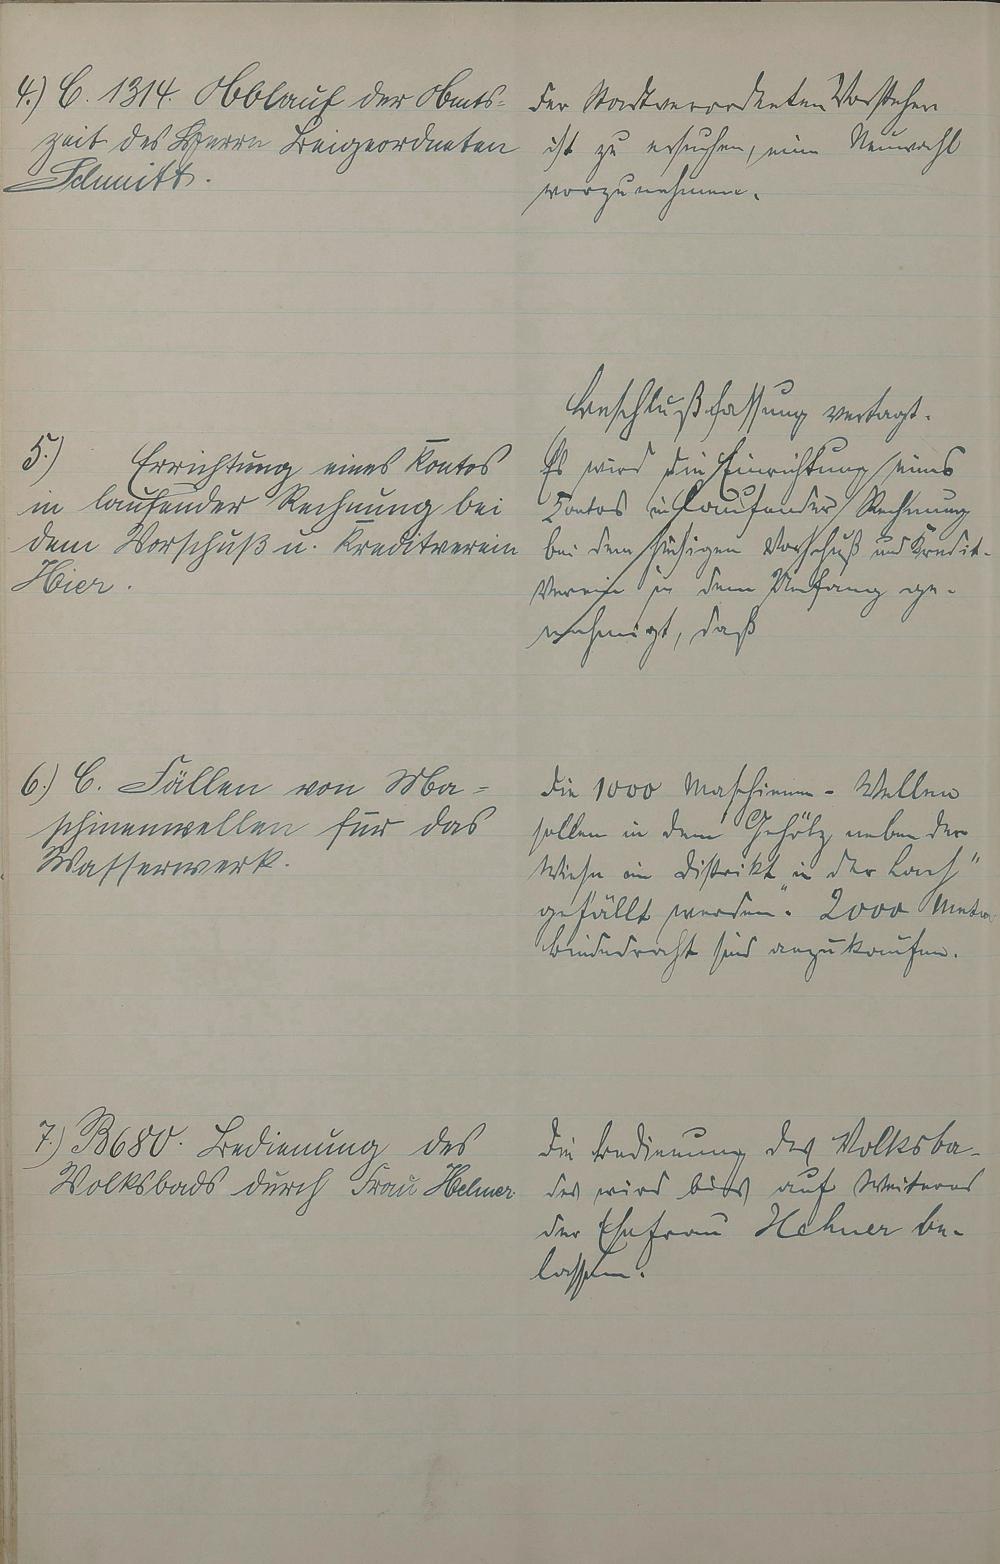 4.) C. 1314. Ablauf der Amts-
zeit des Herrn Beigeordneten
Schmitt.
Der Stadtverordneten Vorsteher
ist zu ersuchen, eine Neuwahl
vorzunehmen.
5.) Errichtung eines Kontos
in laufender Rechnung bei
dem Vorschuß u. Kreditverein
Hier.
Beschlußfassung vertagt.
Es wird die Einrichtung eines
Kontos in laufender Rechnung
bei dem hiesigen Vorschuß und Kredit-
Verein in dem Umfang ge-
nehmigt, daß
6.) C. Fällen von Ma-
schinenwellen für das
Wasserwerk.
Die 1000 Maschinen-Wellen
sollen in dem Gehölz neben der
Wiese im Distrikt "in der Lach"
gefällt werden. 2000 Meter
Bindedraht sind anzukaufen.
7.) B 680. Bedienung des
Volksbads durch Frau Hehner.
Die Bedienung des Volksba-
des wird bis auf Weiteres
der Ehefrau Hehner be-
lassen.